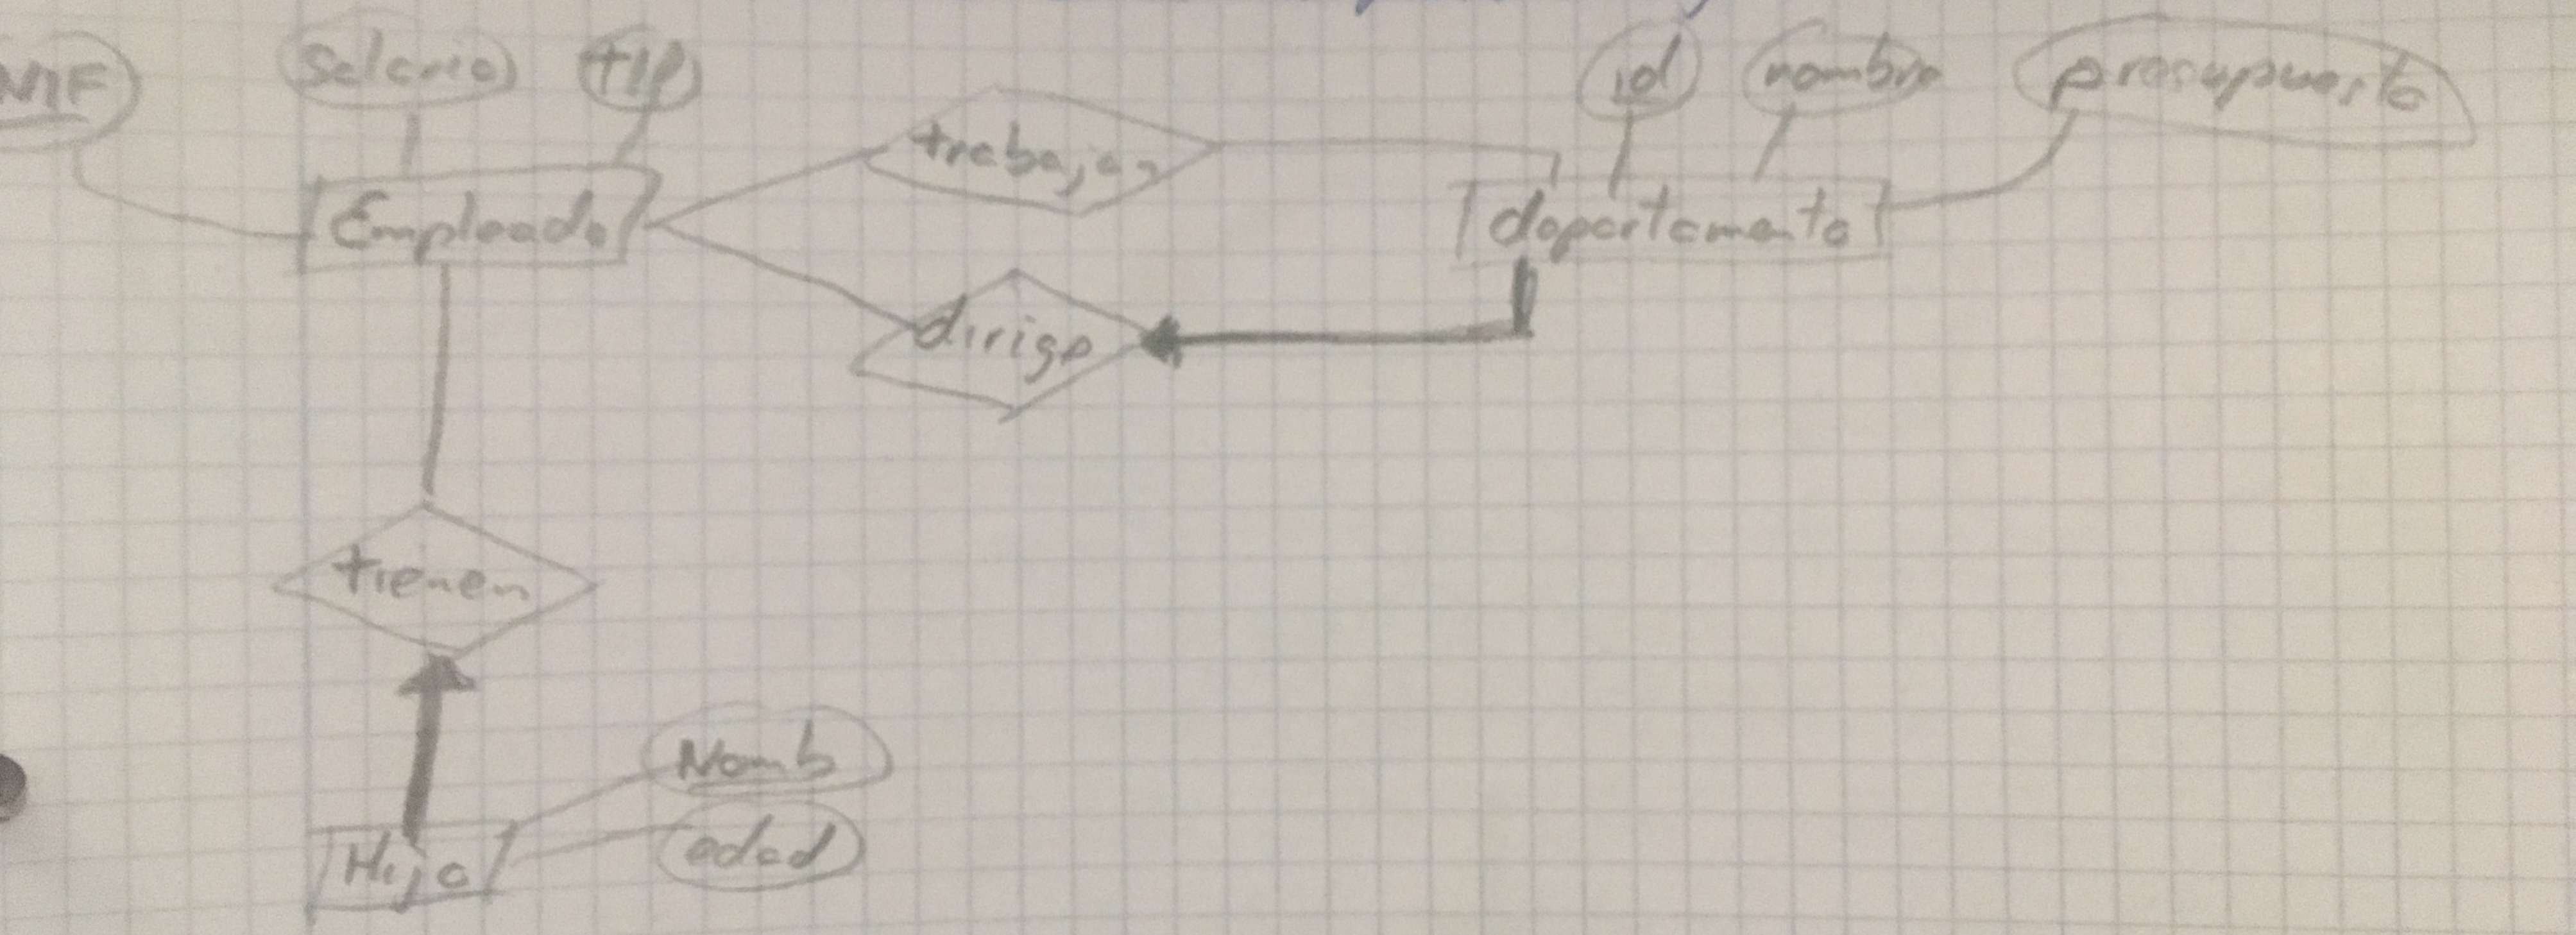 NIF salario tlf id nombre presupuesto
trabajan
Empleado departamento
dirige
tienen
Nomb
edad
Hijo